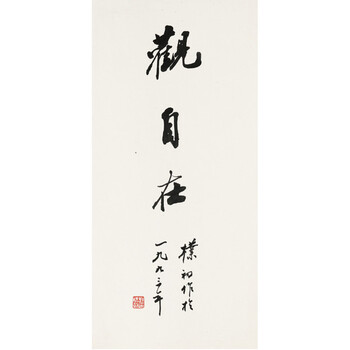 觀自在
樸初作於
一九九三年